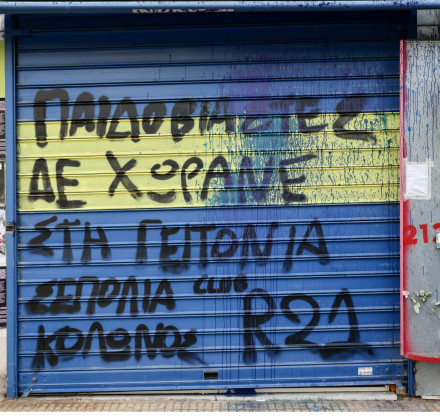 ΠΑΙΔΟΒΙΑΣΤΕΣ
ΔΕ ΧΩΡΑΝΕ
ΣΤΗ ΓΕΙΤΟΝΙΑ
ΣΕΠΟΛΙΑ CLUB R21
ΚΟΛΩΝΟΣ
212